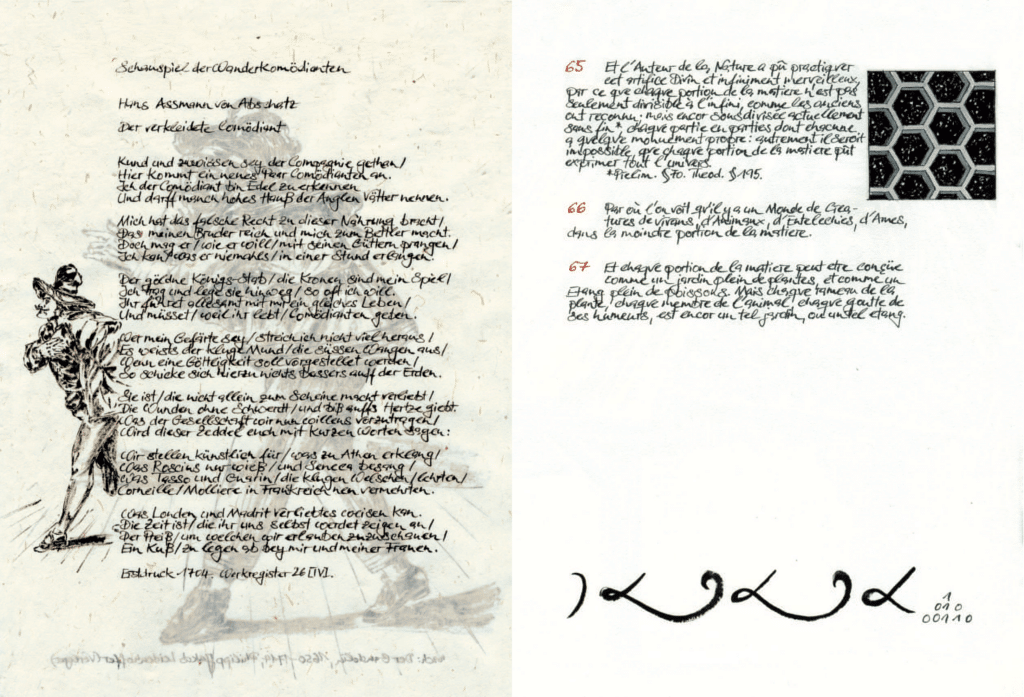 Schauspiel der Wanderkomödianten
Hans Assmann von Abschatz
Der verkleidete Comödiant
Kund und zuwissen sey der Compagnie gethan /
Hier kommt ein neues Paar Comödianten an.
Ich der Comödiant bin Edel zu erkennen
Und darff manch hohes Hauß der Anglen Vätter nennen.
Mich hat das falsche Recht zu dieser Nahrung bracht /
Das meinen Bruder reich und mich zum Bettler macht.
Doch mag er / wie er will / mit seinen Güttern prangen /
Ich kan / was er niemahls / in einer Stund erlangen.
Der göldne Königs-Stab / die Kronen sind mein Spiel /
Ich trag und lege sie hin / so offt ich will.
Ihr führet allesamt mit mir ein gleiches Leben /
Und müsset / weil ihr lebt / Comödianten geben.
Wer mein Gefärte sey / streich ich nicht viel heraus /
Es weists der kluge Mund / die süssen Wangen aus /
Wenn eine Göttigkeit soll vorgestellet werden /
So schickt sich hierzu nichts bessers auff der Erden.
Sie ist / die nicht allein zum Scheine macht verliebt /
Die Wunden ohne Schwerdt / und biß auffs Hertze giebt.
Was der Gesellschafft wir nun willens vorzutragen /
Wird dieser Zeddel euch mit kurzen Worten sagen:
Wir stellen künstlich für / was zu Athen erklang /
Was Roscius nur wieß / und Seneca besang /
Was Tasso und Guarin / die klugen Welschen / lehrten /
Corneille / Molliere in Franckreich nen vermehrten.
Was Londen und Madrit verliebtes weisen kan.
Die Zeit ist / die ihr uns selbst werdet zeigen an /
Der Preiß / um welchen wir erlauben zuzuschauen /
Ein Kuß / zu legen ab bey mir und meiner Frauen.
Erstdruck 1704. Werkregister 26 [IV].
65 Et l'Auteur de la Nature a pû practiquer
cet artifice Divin et infiniment merveilleux,
par ce que chaque portion de la matiere n'est pas
seulement divisible à l'infini, comme les anciens
ont reconnu; mais encor sousdivisée actuellement
sans fin*, chaque partie en parties dont chacune
a quelque mouvement propre: autrement il seroit
impossible, que chaque portion de la matiere pût
exprimer tout l'univers.
*Prelim. §70. Theod. §195.
66 Par où l'on voit qu'il y a un Monde de Crea-
tures de vivans, d'Animaux, d'Entelechies, d'Ames,
dans la moindre portion de la matiere.
67 Et chaque portion de la matiere peut etre conçüe
comme un jardin plein de plantes, et comme un
Etang plein de poissons. Mais chaque rameau de la
plante, chaque membre de l'animal, chaque goutte de
ses humeurs, est encor un tel jardin, ou un tel etang.
1
010
00110